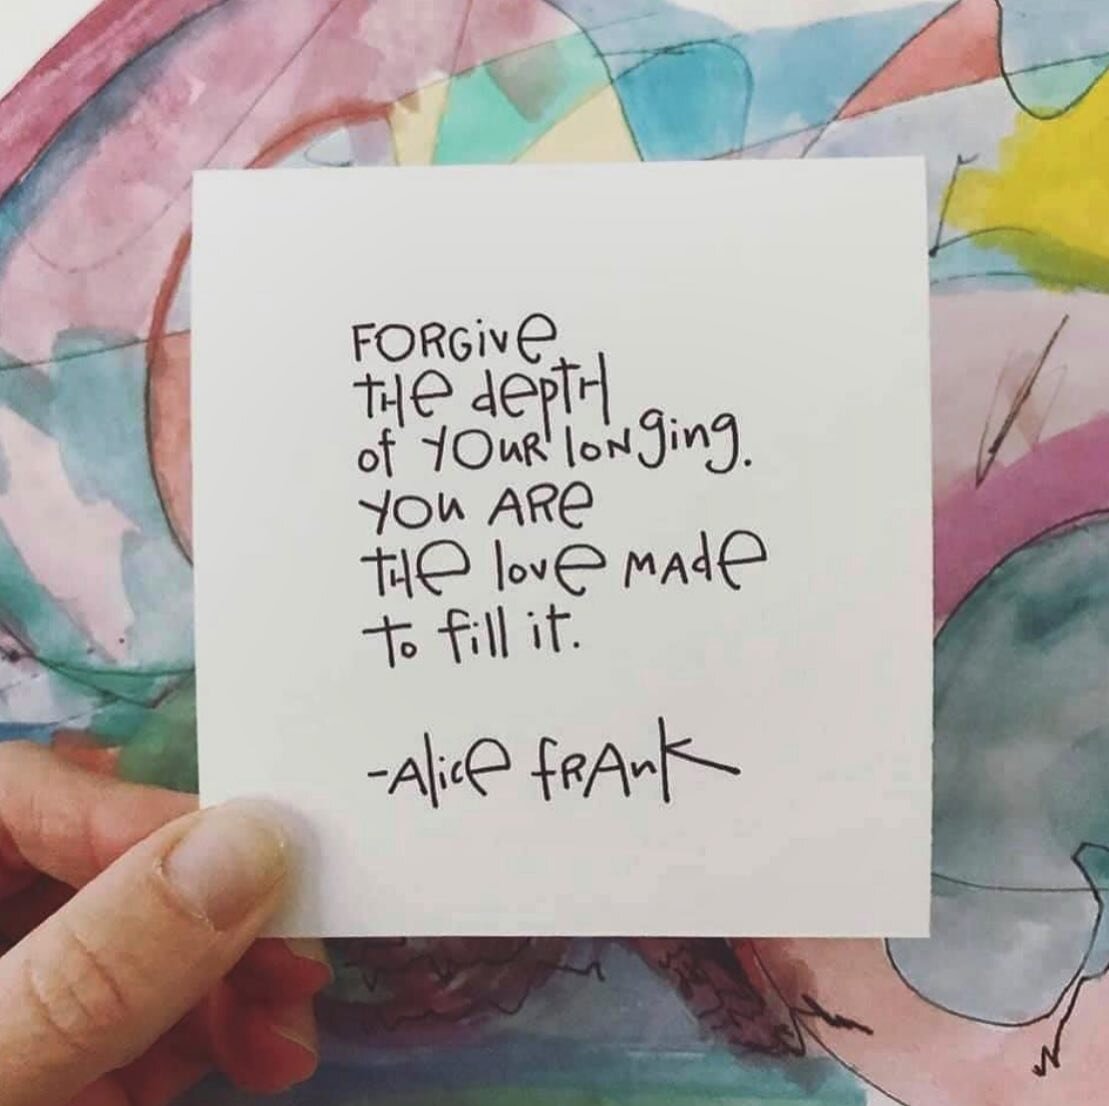 FORGive
THe depTH
of YOuR longing.
you ARe
THe love MAde
To fill it.
-Alice fRAnk